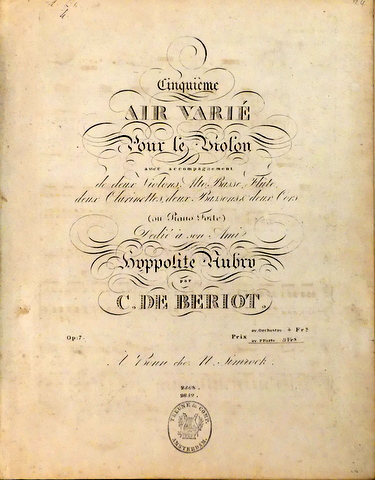 Cinquième
AIR VARIÉ
Pour le Violon
avec accompagnement
de deux Violons, Alto, Basse, Flûte,
deux Clarinettes, deux Bassons & deux Cors
(ou Piano Forte)
Dedié à son Ami
Hyppolite Aubry
par
C. DE BERIOT.
Op: 7.
Prix
av. Orchestre 4 Frs
av. P Forte 3 Frs
A Bonn chez N. Simrock.
THEUNE & COMP.
AMSTERDAM.